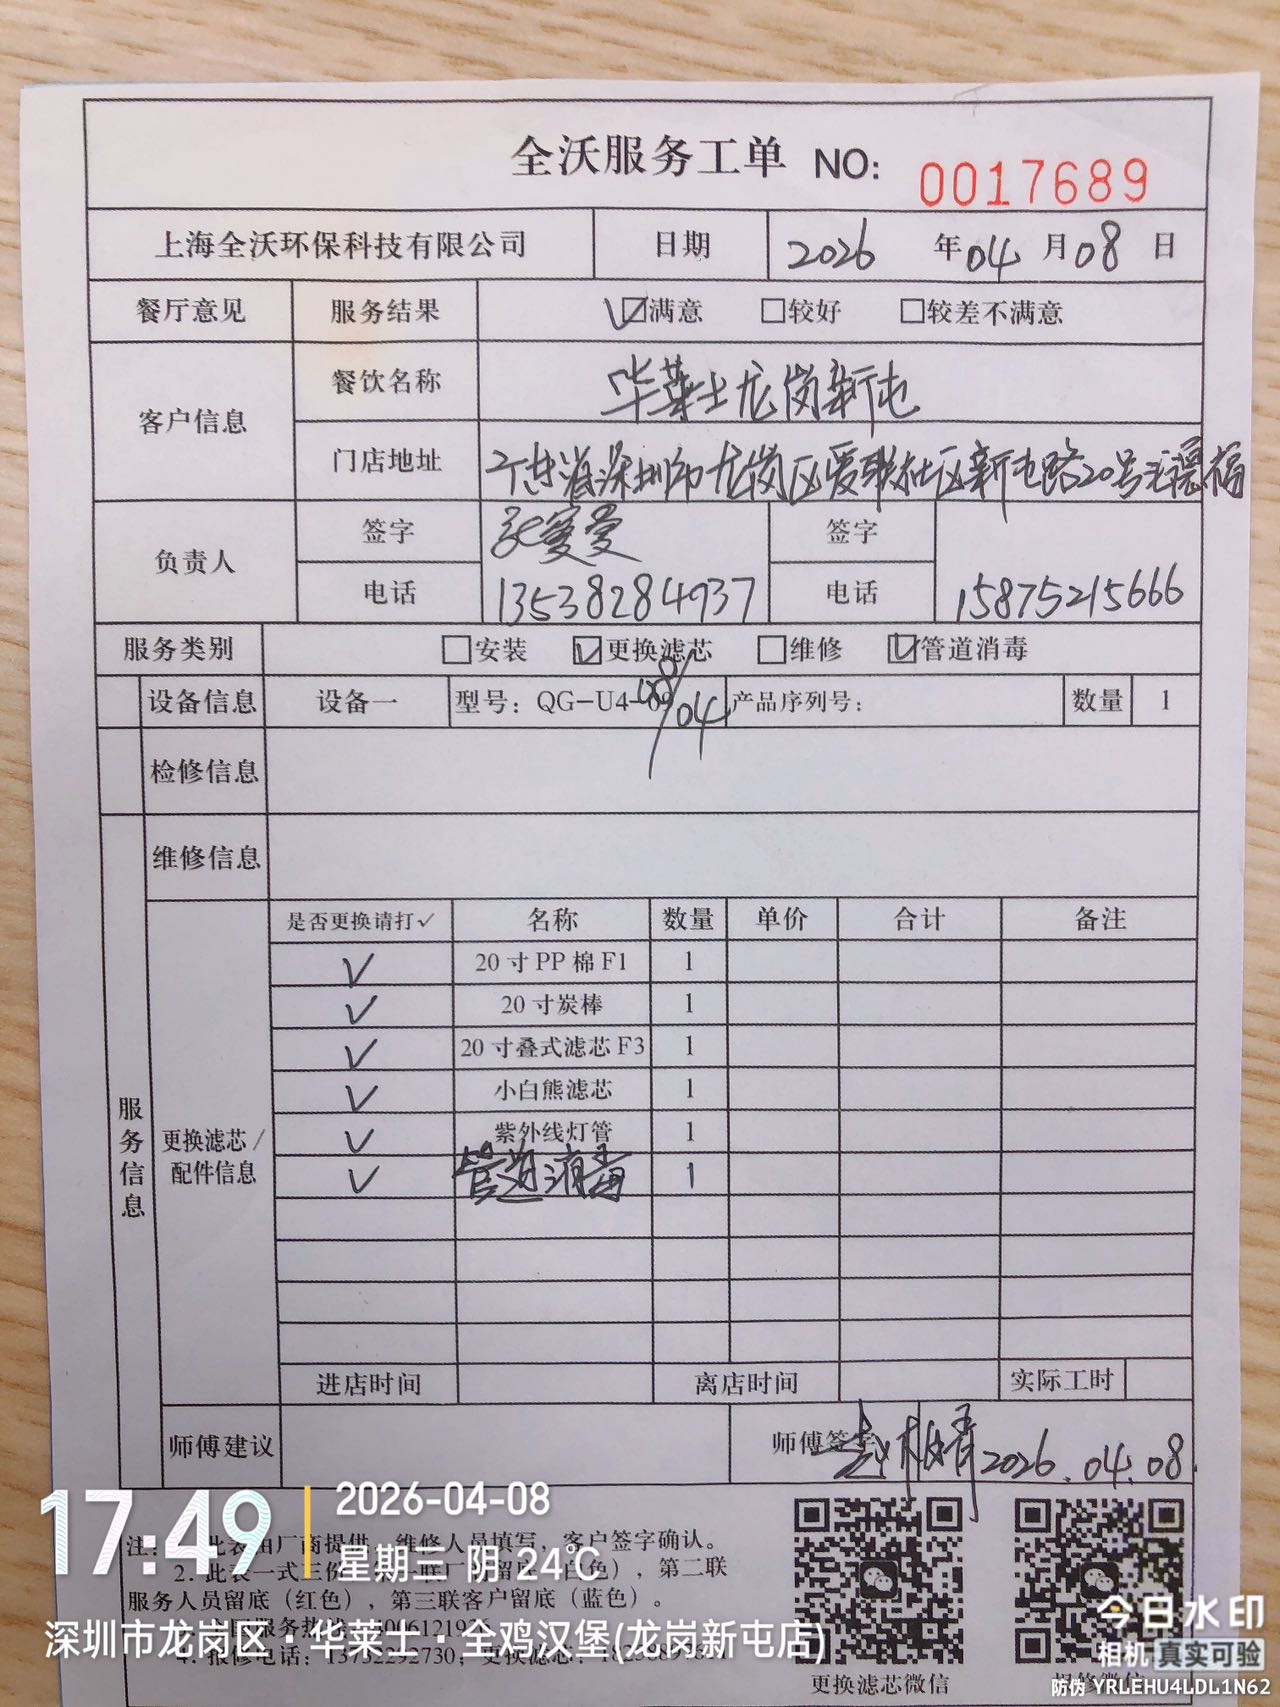 全沃服务工单 NO: 0017689
上海全沃环保科技有限公司 日期 2026 年 04 月 08 日
餐厅意见 服务结果 ☑满意 □较好 □较差不满意
客户信息 餐饮名称 华莱士龙岗新屯
门店地址 广东省深圳市龙岗区爱联社区新屯路20号
负责人 签字 签字
电话 13538284937 电话 15875215666
服务类别 □安装 ☑更换滤芯 □维修 ☑管道消毒
设备信息 设备一 型号：QG-U4- 产品序列号： 数量 1
08/04
检修信息
维修信息
服务信息
更换滤芯/配件信息
是否更换请打✓ 名称 数量 单价 合计 备注
✓ 20寸PP棉F1 1
✓ 20寸炭棒 1
✓ 20寸叠式滤芯F3 1
✓ 小白熊滤芯 1
✓ 紫外线灯管 1
✓ 管道消毒 1
进店时间 离店时间 实际工时
师傅建议 师傅签字 2026.04.08
注： 此表由厂商提供，维修人员填写，客户签字确认。
2. 此表一式三份， （白色），第二联
服务人员留底（红色），第三联客户留底（蓝色）。
4. 报修电话：13752292730；更换滤芯：
更换滤芯微信 报修微信
17:49 2026-04-08
星期三 阴 24℃
深圳市龙岗区·华莱士·全鸡汉堡(龙岗新屯店)
今日水印
相机 真实可验
防伪 YRLEHU4LDL1N62